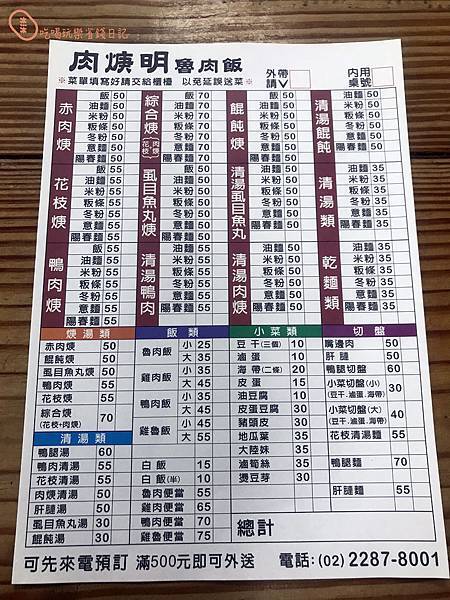 吃喝玩樂省錢日記
肉焿明魯肉飯
※菜單填寫好請交給櫃檯 以免延誤送菜※
外帶請✓
內用桌號
赤肉焿
飯 50
油麵 50
米粉 50
粄條 50
冬粉 50
意麵 50
陽春麵 50
花枝焿
飯 55
油麵 55
米粉 55
粄條 55
冬粉 55
意麵 55
陽春麵 55
鴨肉焿
飯 55
油麵 55
米粉 55
粄條 55
冬粉 55
意麵 55
陽春麵 55
綜合焿(花枝 肉焿)
飯 70
油麵 70
米粉 70
粄條 70
冬粉 70
意麵 70
陽春麵 70
虱目魚丸焿
飯 50
油麵 50
米粉 50
粄條 50
冬粉 50
意麵 50
陽春麵 50
清湯鴨肉
油麵 55
米粉 55
粄條 55
冬粉 55
意麵 55
陽春麵 55
餛飩焿
飯 50
油麵 50
米粉 50
粄條 50
冬粉 50
意麵 50
陽春麵 50
清湯虱目魚丸
油麵 50
米粉 50
粄條 50
冬粉 50
意麵 50
陽春麵 50
清湯肉焿
油麵 50
米粉 50
粄條 50
冬粉 50
意麵 50
陽春麵 50
清湯餛飩
油麵 50
米粉 50
粄條 50
冬粉 50
意麵 50
陽春麵 50
清湯類
油麵 35
米粉 35
粄條 35
冬粉 35
意麵 35
陽春麵 35
乾麵類
油麵 35
米粉 35
粄條 35
冬粉 35
意麵 35
陽春麵 35
焿湯類
赤肉焿 50
餛飩焿 50
虱目魚丸焿 50
鴨肉焿 55
花枝焿 55
綜合焿(花枝+肉焿) 70
清湯類
鴨腿湯 60
鴨肉清湯 55
花枝清湯 55
肉焿清湯 50
肝腱湯 50
虱目魚丸湯 30
餛飩湯 30
飯類
魯肉飯 小 25
大 35
雞肉飯 小 35
大 45
鴨肉飯 小 35
大 45
雞魯飯 小 45
大 55
白飯 15
白飯(小) 10
魯肉便當 55
雞肉便當 65
鴨肉便當 70
雞魯便當 75
小菜類
豆干(三個) 10
滷蛋 10
海帶(二條) 20
皮蛋 15
油豆腐 10
皮蛋豆腐 30
豬頭皮 30
地瓜葉 35
大陸妹 35
滷筍絲 35
燙豆芽 30
總計
切盤
嘴邊肉 50
肝腱 50
鴨腿切盤 60
小菜切盤(小)(豆干.滷蛋.海帶) 30
小菜切盤(大)(豆干.滷蛋.海帶) 40
花枝清湯麵 55
鴨腿麵 70
肝腱麵 55
可先來電預訂 滿500元即可外送 電話:(02) 2287-8001